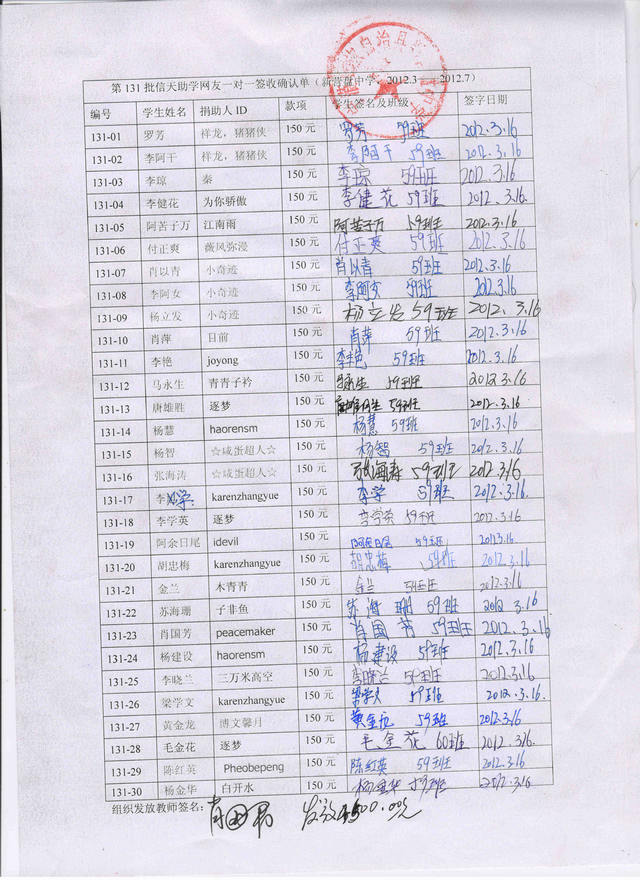 第 131 批信天助学网友一对一签收确认单（新营盘中学 2012.3——2012.7）
编号 学生姓名 捐助人 ID 款项 学生签名及班级 签字日期
131-01 罗芳 祥龙，猪猪侠 150 元 罗芳 59班 2012.3.16
131-02 李阿干 祥龙，猪猪侠 150 元 李阿干 59班 2012.3.16
131-03 李琼 秦 150 元 李琼 59班 2012.3.16
131-04 李健花 为你骄傲 150 元 李健花 59班 2012.3.16
131-05 阿苦子万 江南雨 150 元 阿苦子万 59班 2012.3.16
131-06 付正爽 薇风弥漫 150 元 付正爽 59班 2012.3.16
131-07 肖以青 小奇迹 150 元 肖以青 59班 2012.3.16
131-08 李阿女 小奇迹 150 元 李阿女 59班 2012.3.16
131-09 杨立发 小奇迹 150 元 杨立发 59班 2012.3.16
131-10 肖萍 日前 150 元 肖萍 59班 2012.3.16
131-11 李艳 joyong 150 元 李艳 59班 2012.3.16
131-12 马永生 青青子衿 150 元 59班 2012.3.16
131-13 唐雄胜 逐梦 150 元 59班 2012.3.16
131-14 杨慧 haorensm 150 元 杨慧 59班 2012.3.16
131-15 杨智 ☆咸蛋超人☆ 150 元 杨智 59班 2012.3.16
131-16 张海涛 ☆咸蛋超人☆ 150 元 张海涛 59班 2012.3.16
131-17 李学 karenzhangyue 150 元 李学 59班 2012.3.16
131-18 李学英 逐梦 150 元 李学英 59班 2012.3.16
131-19 阿余日尾 idevil 150 元 59班 2012.3.16
131-20 胡忠梅 karenzhangyue 150 元 胡忠梅 59班 2012.3.16
131-21 金兰 木青青 150 元 金兰 59班 2012.3.16
131-22 苏海珊 子非鱼 150 元 苏海珊 59班 2012 3.16
131-23 肖国芳 peacemaker 150 元 肖国芳 59班 2012.3.16
131-24 杨建设 haorensm 150 元 杨建设 59班 2012.3.16
131-25 李晓兰 三万米高空 150 元 李晓兰 59班 2012.3.16
131-26 梁学文 karenzhangyue 150 元 梁学文 59班 2012.3.16
131-27 黄金龙 博文馨月 150 元 黄金龙 59班 2012.3.16
131-28 毛金花 逐梦 150 元 毛金花 60班 2012.3.16.
131-29 陈红英 Pheobepeng 150 元 陈红英 59班 2012.3.16
131-30 杨金华 白开水 150 元 杨金华 59班 2012.3.16
组织发放教师签名： 发放4500.00元